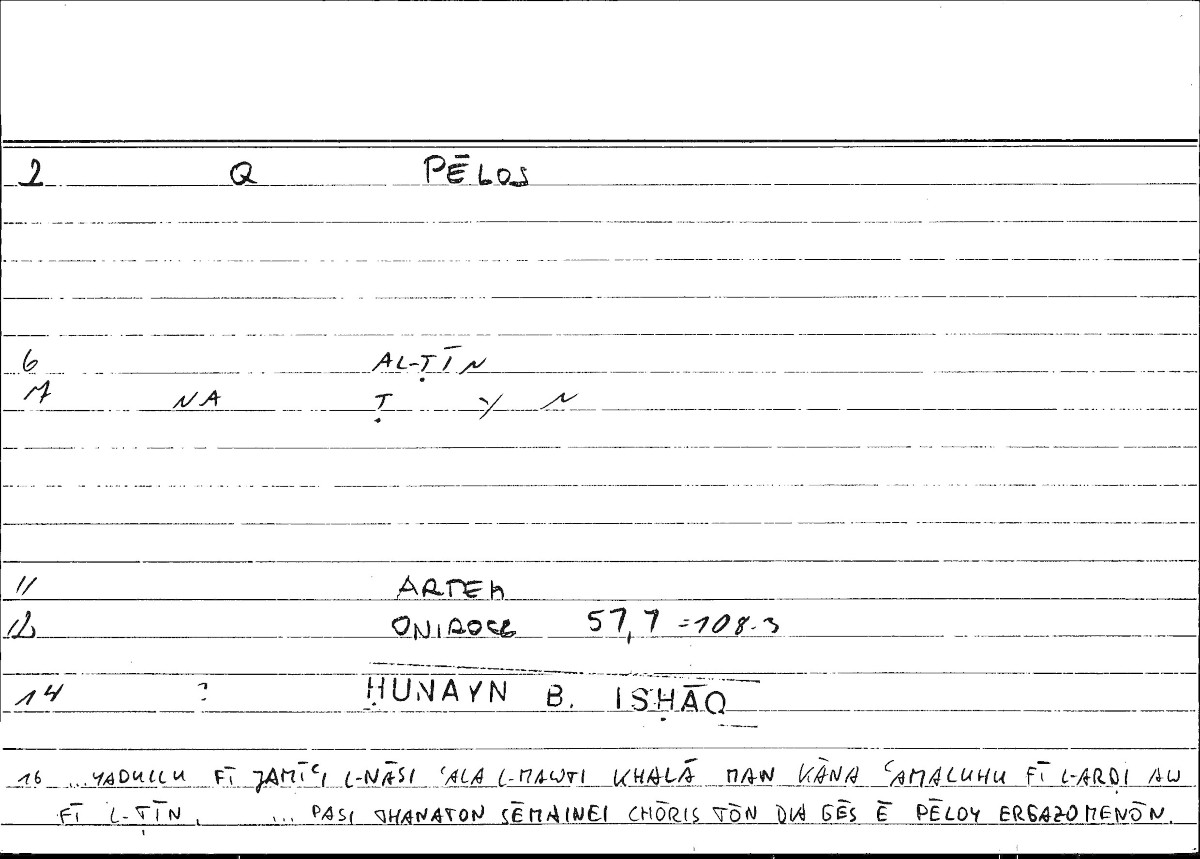 2 Q PĒLOS
6 AL-ṬĪN
7 NA Ṭ Y N
11 ARTEM
12 ONIROCR 57,7 =108.3
14 ? ḤUNAYN B. ISḤĀQ
16 ...YADULLU FĪ JAMĪʿI L-NĀSI ʿALA L-MAWTI KHALĀ MAN KĀNA ʿAMALUHU FĪ L-ARḌI AW
FĪ L-ṬĪN. ... PASI THANATON SĒMAINEI CHŌRIS TŌN DIA GĒS Ē PĒLOY ERGAZOMENŌN.